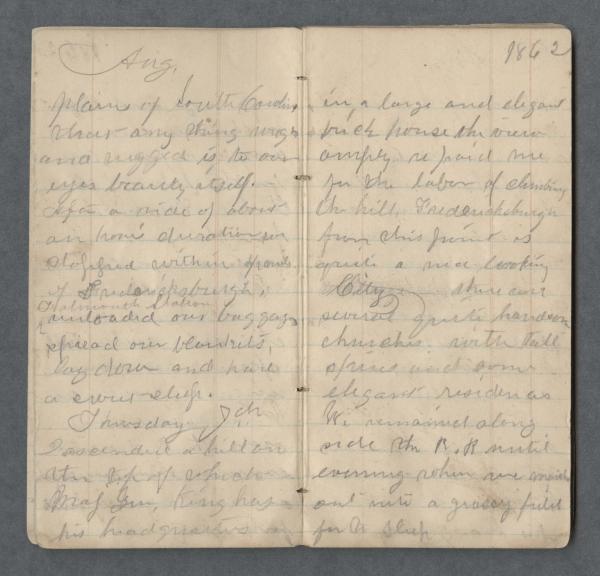 Aug.
plains of South Carolina
that any thing rough
and rugged is to our
eyes beauty itself.
After a ride of about
an hours duration we
stopped within
of Fredericksburgh,
Falmouth Station
unloaded our baggage
spread our blankets,
lay down and had
a sweet sleep.
Thursday 7th
I ascended a hill on
the top of which
Maj Gen, King has
his headquarters
1862
in, a large and elegant
brick house the view
amply repaid me
for the labor of climbing
the hill, Fredericksburgh
from this point is
quite a nice looking
City there are
several quite handsome
churches with tall
spires and some
elegant residences
We remained along
side the R. R until
evening when we
out into a grassy field
for to sleep